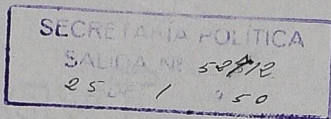 SECRETARIA POLITICA
SALIDA Nº 52712
25 DE 1 950